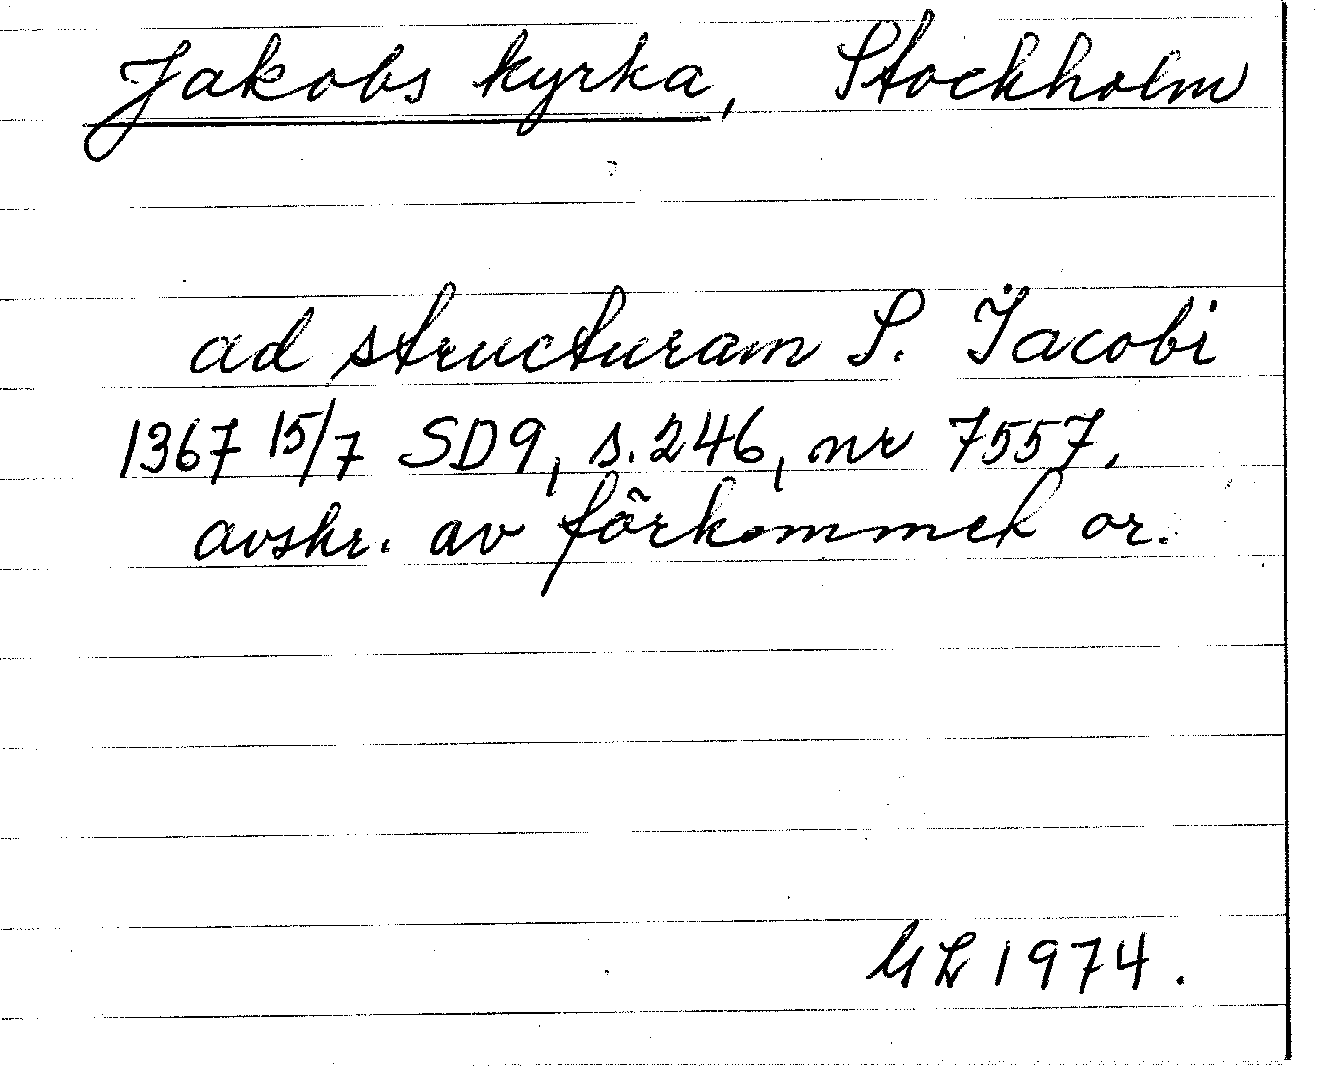 Jakobs kyrka, Stockholm
ad structuram S. Jacobi
1367 15/7 SD9, s. 246, nr 7557,
avskr. av förkommet or.
1974.